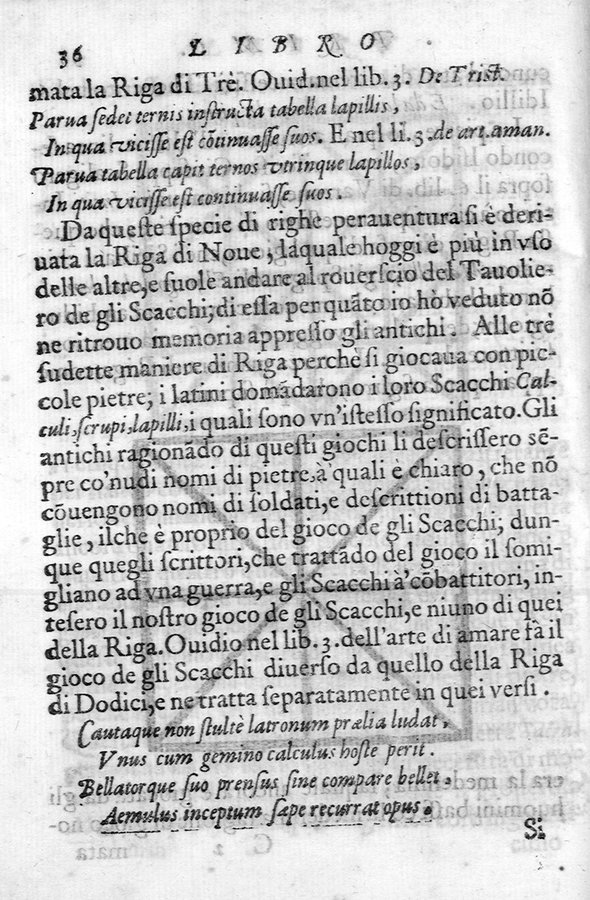 36 LIBRO
mata la Riga di Trè. Ouid.nel lib. 3. De Trist.
Parua sedet ternis instructa tabella lapillis,
In qua vicisse est cōtinuasse suos. E nel li. 3. de art. aman.
Parua tabella capit ternos vtrinque lapillos,
In qua vicisse est continuasse suos.
Da queste specie di righe perauentura si è deri-
uata la Riga di Noue, laquale hoggi è più in vso
delle altre,e suole andare al rouerscio del Tauolie-
ro de gli Scacchi;di essa per quāto io hò veduto nō
ne ritrouo memoria appresso gli antichi. Alle trè
sudette maniere di Riga perchè si giocaua con pic-
cole pietre; i latini domādarono i loro Scacchi Cal-
culi,scrupi,lapilli,i quali sono vn'istesso significato.Gli
antichi ragionādo di questi giochi li descrissero sē-
pre co'nudi nomi di pietre,à quali è chiaro, che nō
cōuengono nomi di soldati,e descrittioni di batta-
glie, ilche è proprio del gioco de gli Scacchi; dun-
que quegli scrittori,che trattādo del gioco il somi-
gliano ad vna guerra,e gli Scacchi à'cōbattitori, in-
tesero il nostro gioco de gli Scacchi,e niuno di quei
della Riga. Ouidio nel lib. 3. dell'arte di amare fà il
gioco de gli Scacchi diuerso da quello della Riga
di Dodici,e ne tratta separatamente in quei versi.
Cautaque non stultè latronum prælia ludat,
Vnus cum gemino calculus hoste perit.
Bellatorque suo prensus sine compare bellet,
Aemulus inceptum sæpe recurrat opus.
Si